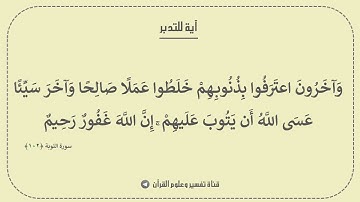 آية للتدبر
وَآخَرُونَ اعتَرَفُوا بِذُنُوبِهِمْ خَلَطُوا عَمَلًا صَالِحًا وَآخَرَ سَيِّئًا
عَسَى اللَّهُ أَن يَتُوبَ عَلَيهِمْ ۚ إِنَّ اللَّهَ غَفُورٌ رَحِيمٌ
سورة التوبة ﴿١٠٢﴾
قناة تفسير وعلوم القرآن